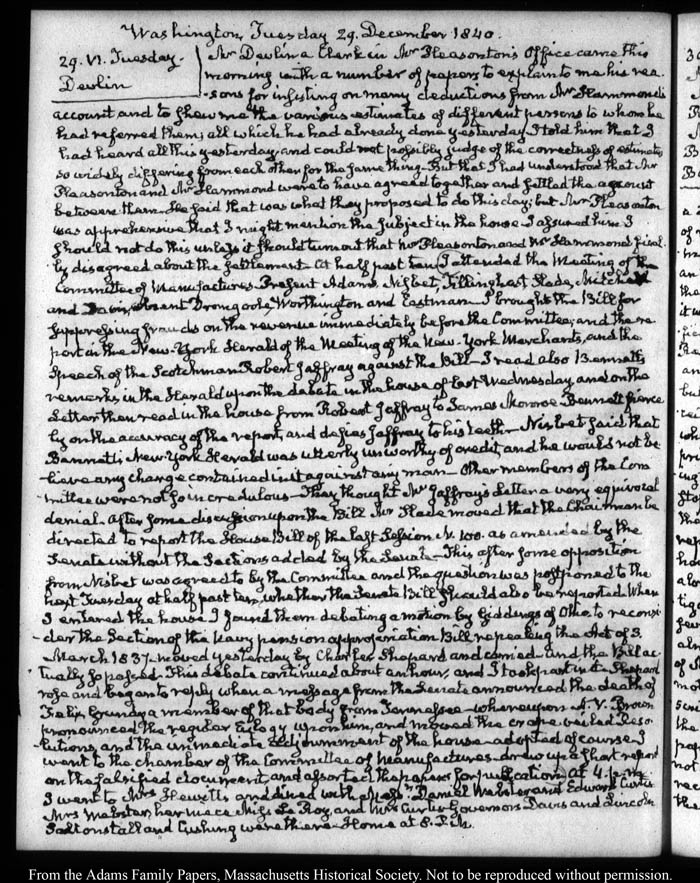 Washington, Tuesday 29. December 1840.
29. VI. Tuesday.
Devlin
Mr Devlin a Clerk in Mr Pleasonton's Office came this
morning with a number of papers to explain to me his rea-
-sons for insisting on many deductions from Mr Hammond's
account and to shew me the various estimates of different persons to whom he
had referred them; all which he had already done yesterday. I told him that I
had heard all this yesterday, and could not possibly judge of the correctness of estimates
so widely differing from each other for the same thing. But that I had understood that Mr
Pleasonton and Mr Hammond were to have agreed together and settled the account
between them. He said that was what they proposed to do this day; but Mr Pleasonton
was apprehensive that I might mention the subject in the house. I assured him I
should not do this unless it should turn out that Mr Pleasonton and Mr Hammond final-
ly disagreed about the settlement. At half past ten I attended the Meeting of the
Committee of Manufactures. Present Adams, Nisbet, Tillinghast, Slade, Mitchell
and Davis, absent Dromgoole, Worthington and Eastman. I brought the Bill for
suppressing frauds on the revenue immediately before the Committee; and the re-
port in the New-York Herald of the Meeting of the New-York Merchants, and the
speech of the Scotchman Robert Jaffray against the Bill. I read also Bennett's
remarks in the Herald upon the debate in the house of last Wednesday, and on the
Letter then read in the house from Robert Jaffray to James Monroe. Bennett fierce-
ly on the accuracy of the report, and defies Jaffray to his teeth. Nisbet said that
Bennett's New-York Herald was utterly unworthy of credit, and he would not be-
lieve any charge contained in it against any man. Other members of the Com-
mittee were not so incredulous. They thought Mr Jaffray's Letter a very equivocal
denial. After some discussion upon the Bill Mr Slade moved that the Chairman be
directed to report the House Bill of the last Session N. 100. as amended by the
Senate without the Sections added by the Senate. This after some opposition
from Nisbet was agreed to by the Committee and the question was postponed to the
next Tuesday at half past ten, whether the Senate Bill should also be reported. When
I entered the house I found them debating a motion by Giddings of Ohio to reconsi-
-der the Section of the Navy pension appropriation Bill repealing the Act of 3.
March 1837. moved yesterday by Charles Shepard and carried and the Bill ac-
tually so passed. This debate continued about an hour, and I took part in it. Shepard
rose and began to reply when a message from the Senate announced the death of
Felix Grundy a member of that body from Tennessee whereupon A. V. Brown
pronounced the regular Eulogy upon him, and moved the crape-veiled Reso-
-lutions, and the immediate adjournment of the house adopted of course. I
went to the chamber of the Committee of Manufactures drew up a short report
on the falsified document, and assorted the papers for publication. At 4. p.m.
I went to Mrs Hewitt's and dined with Messrs Daniel Webster and Edward Curtis
Mrs Webster, her niece Miss Le Roy, and Mrs Curtis. Governors Davis and Lincoln
Saltonstall and Cushing were there. Home at 8. P.M.
From the Adams Family Papers, Massachusetts Historical Society. Not to be reproduced without permission.